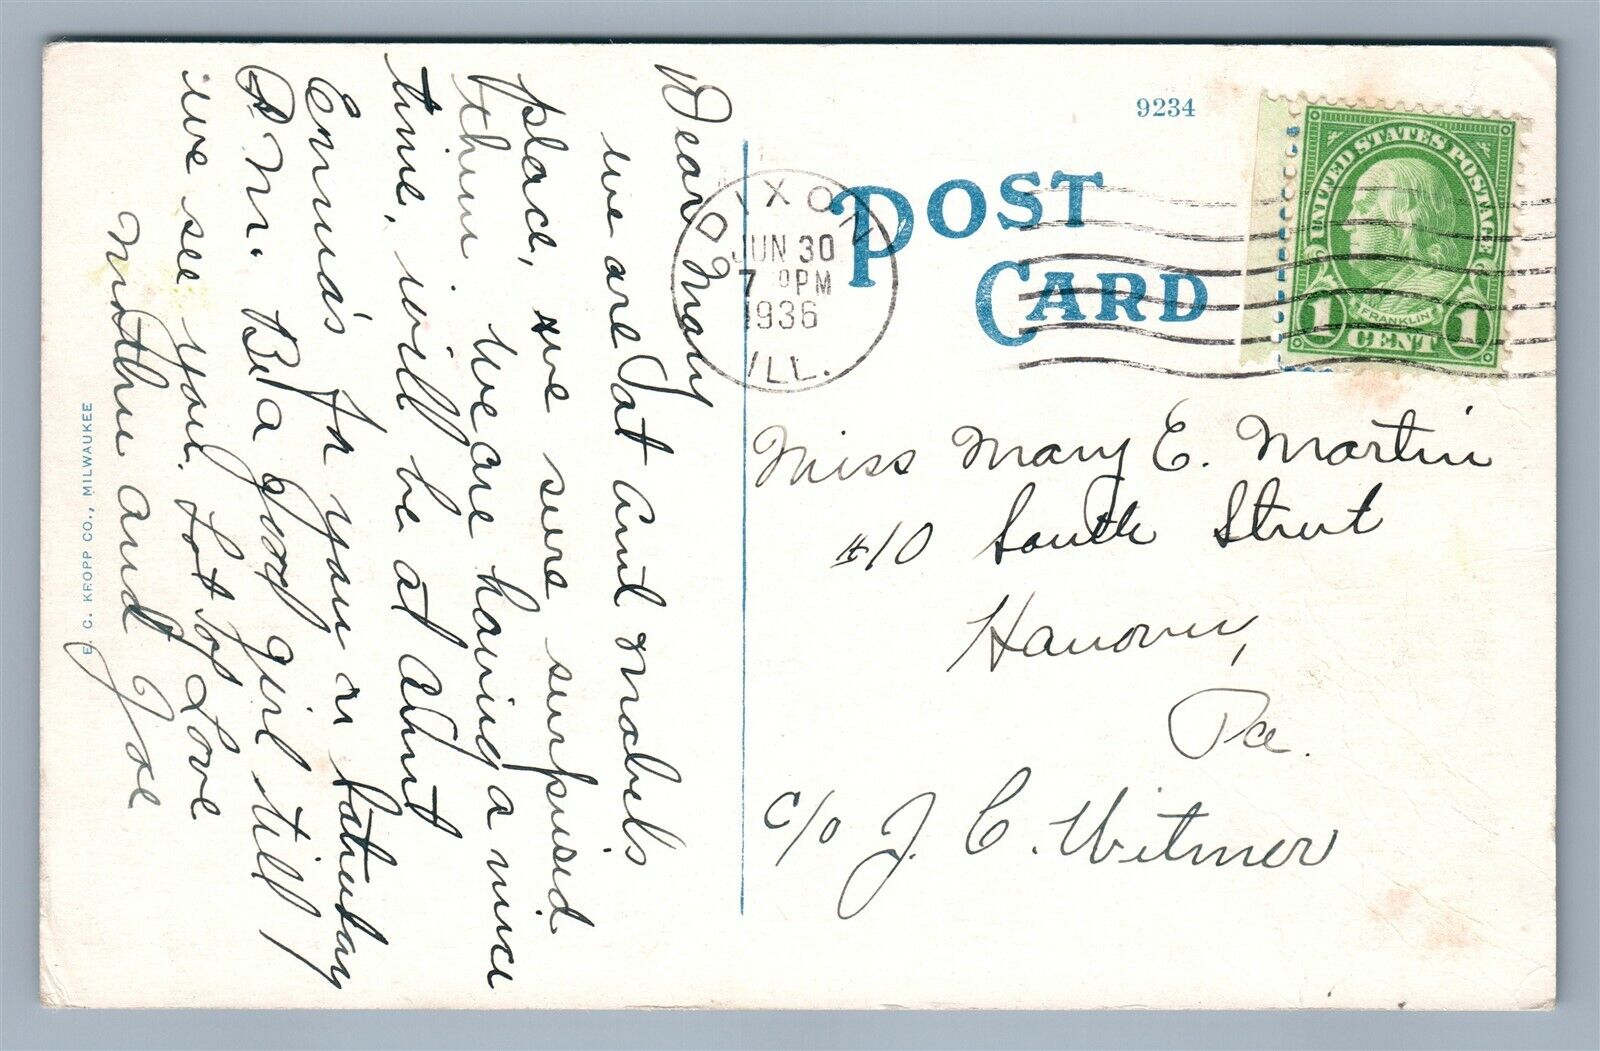 Dear Mary
we are at Aunt Mabel's
place, we sure surprised
them. We are having a nice
time, will be at Aunt
Emma's Fr. you or Saturday
P.M. Be a good girl till
we see you. Lots of Love
Mother and Joe
E. C. KROPP CO., MILWAUKEE
9234
POST
CARD
DIXON
JUN 30
7 PM
1936
ILL.
UNITED STATES POSTAGE
FRANKLIN
1 CENT 1
Miss Mary E. Martin
#10 South Street
Hanover,
Pa.
c/o J. C. Witmer